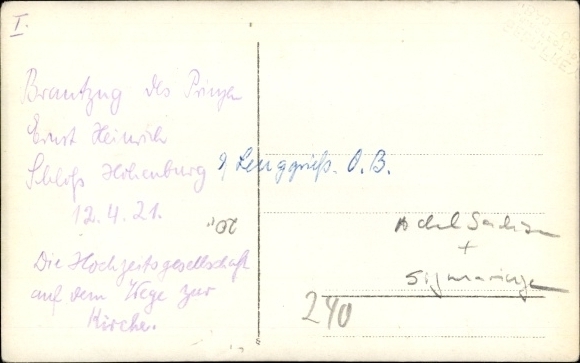 I.
Brautzug des Prinzen
Ernst Heinrich
Schloß Hohenburg b/ Lenggrieß. O.B.
12.4.21.
Die Hochzeitsgesellschaft
auf dem Wege zur
Kirche.
20,-
Adel Sachsen
+
Sigmaringen
240